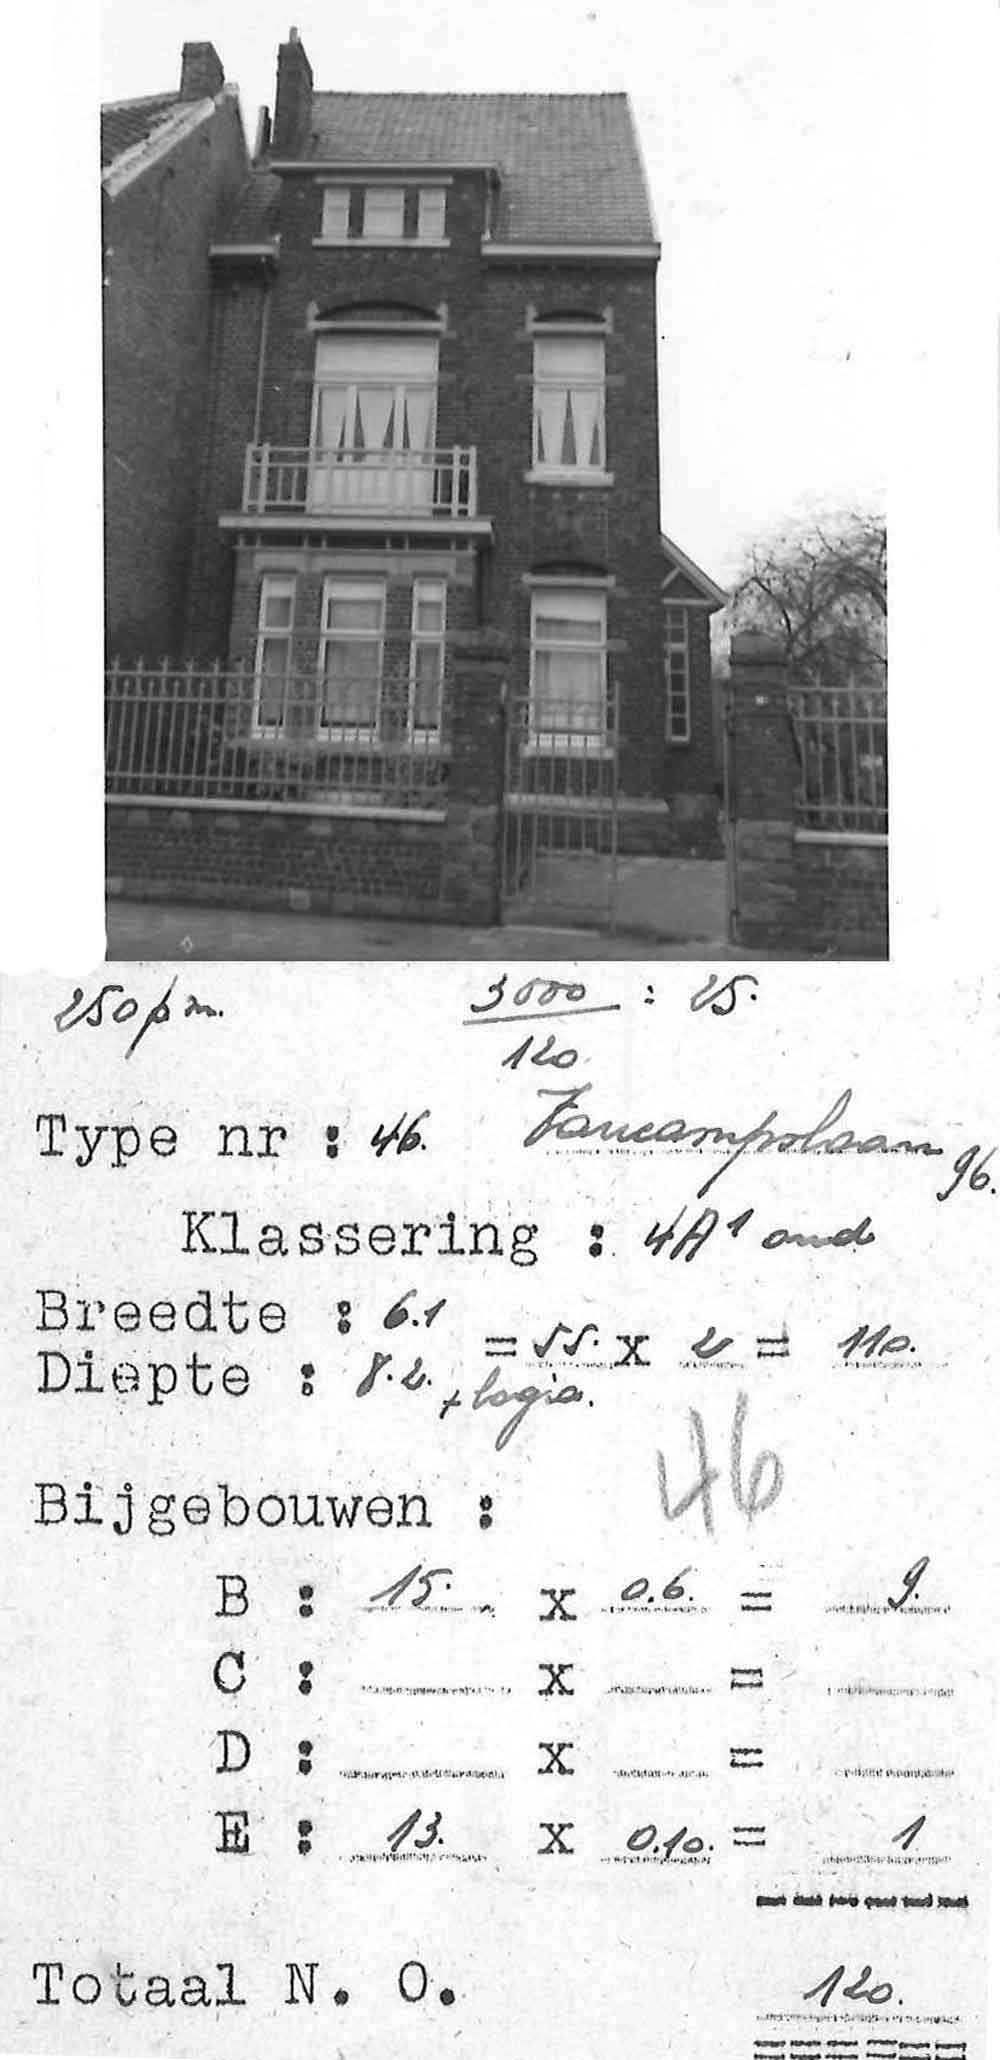 250 pm. 3000 : 25.
120
Type nr : 46. Vancampslaan 96.
Klassering : 4A1 oud
Breedte : 6.1
Diepte : 8.2. = 55. x 2 = 110.
+ logia.
46
Bijgebouwen :
B : 15. x 0.6. = 9.
C : x =
D : x =
E : 13. x 0.10. = 1
Totaal N. O. 120.